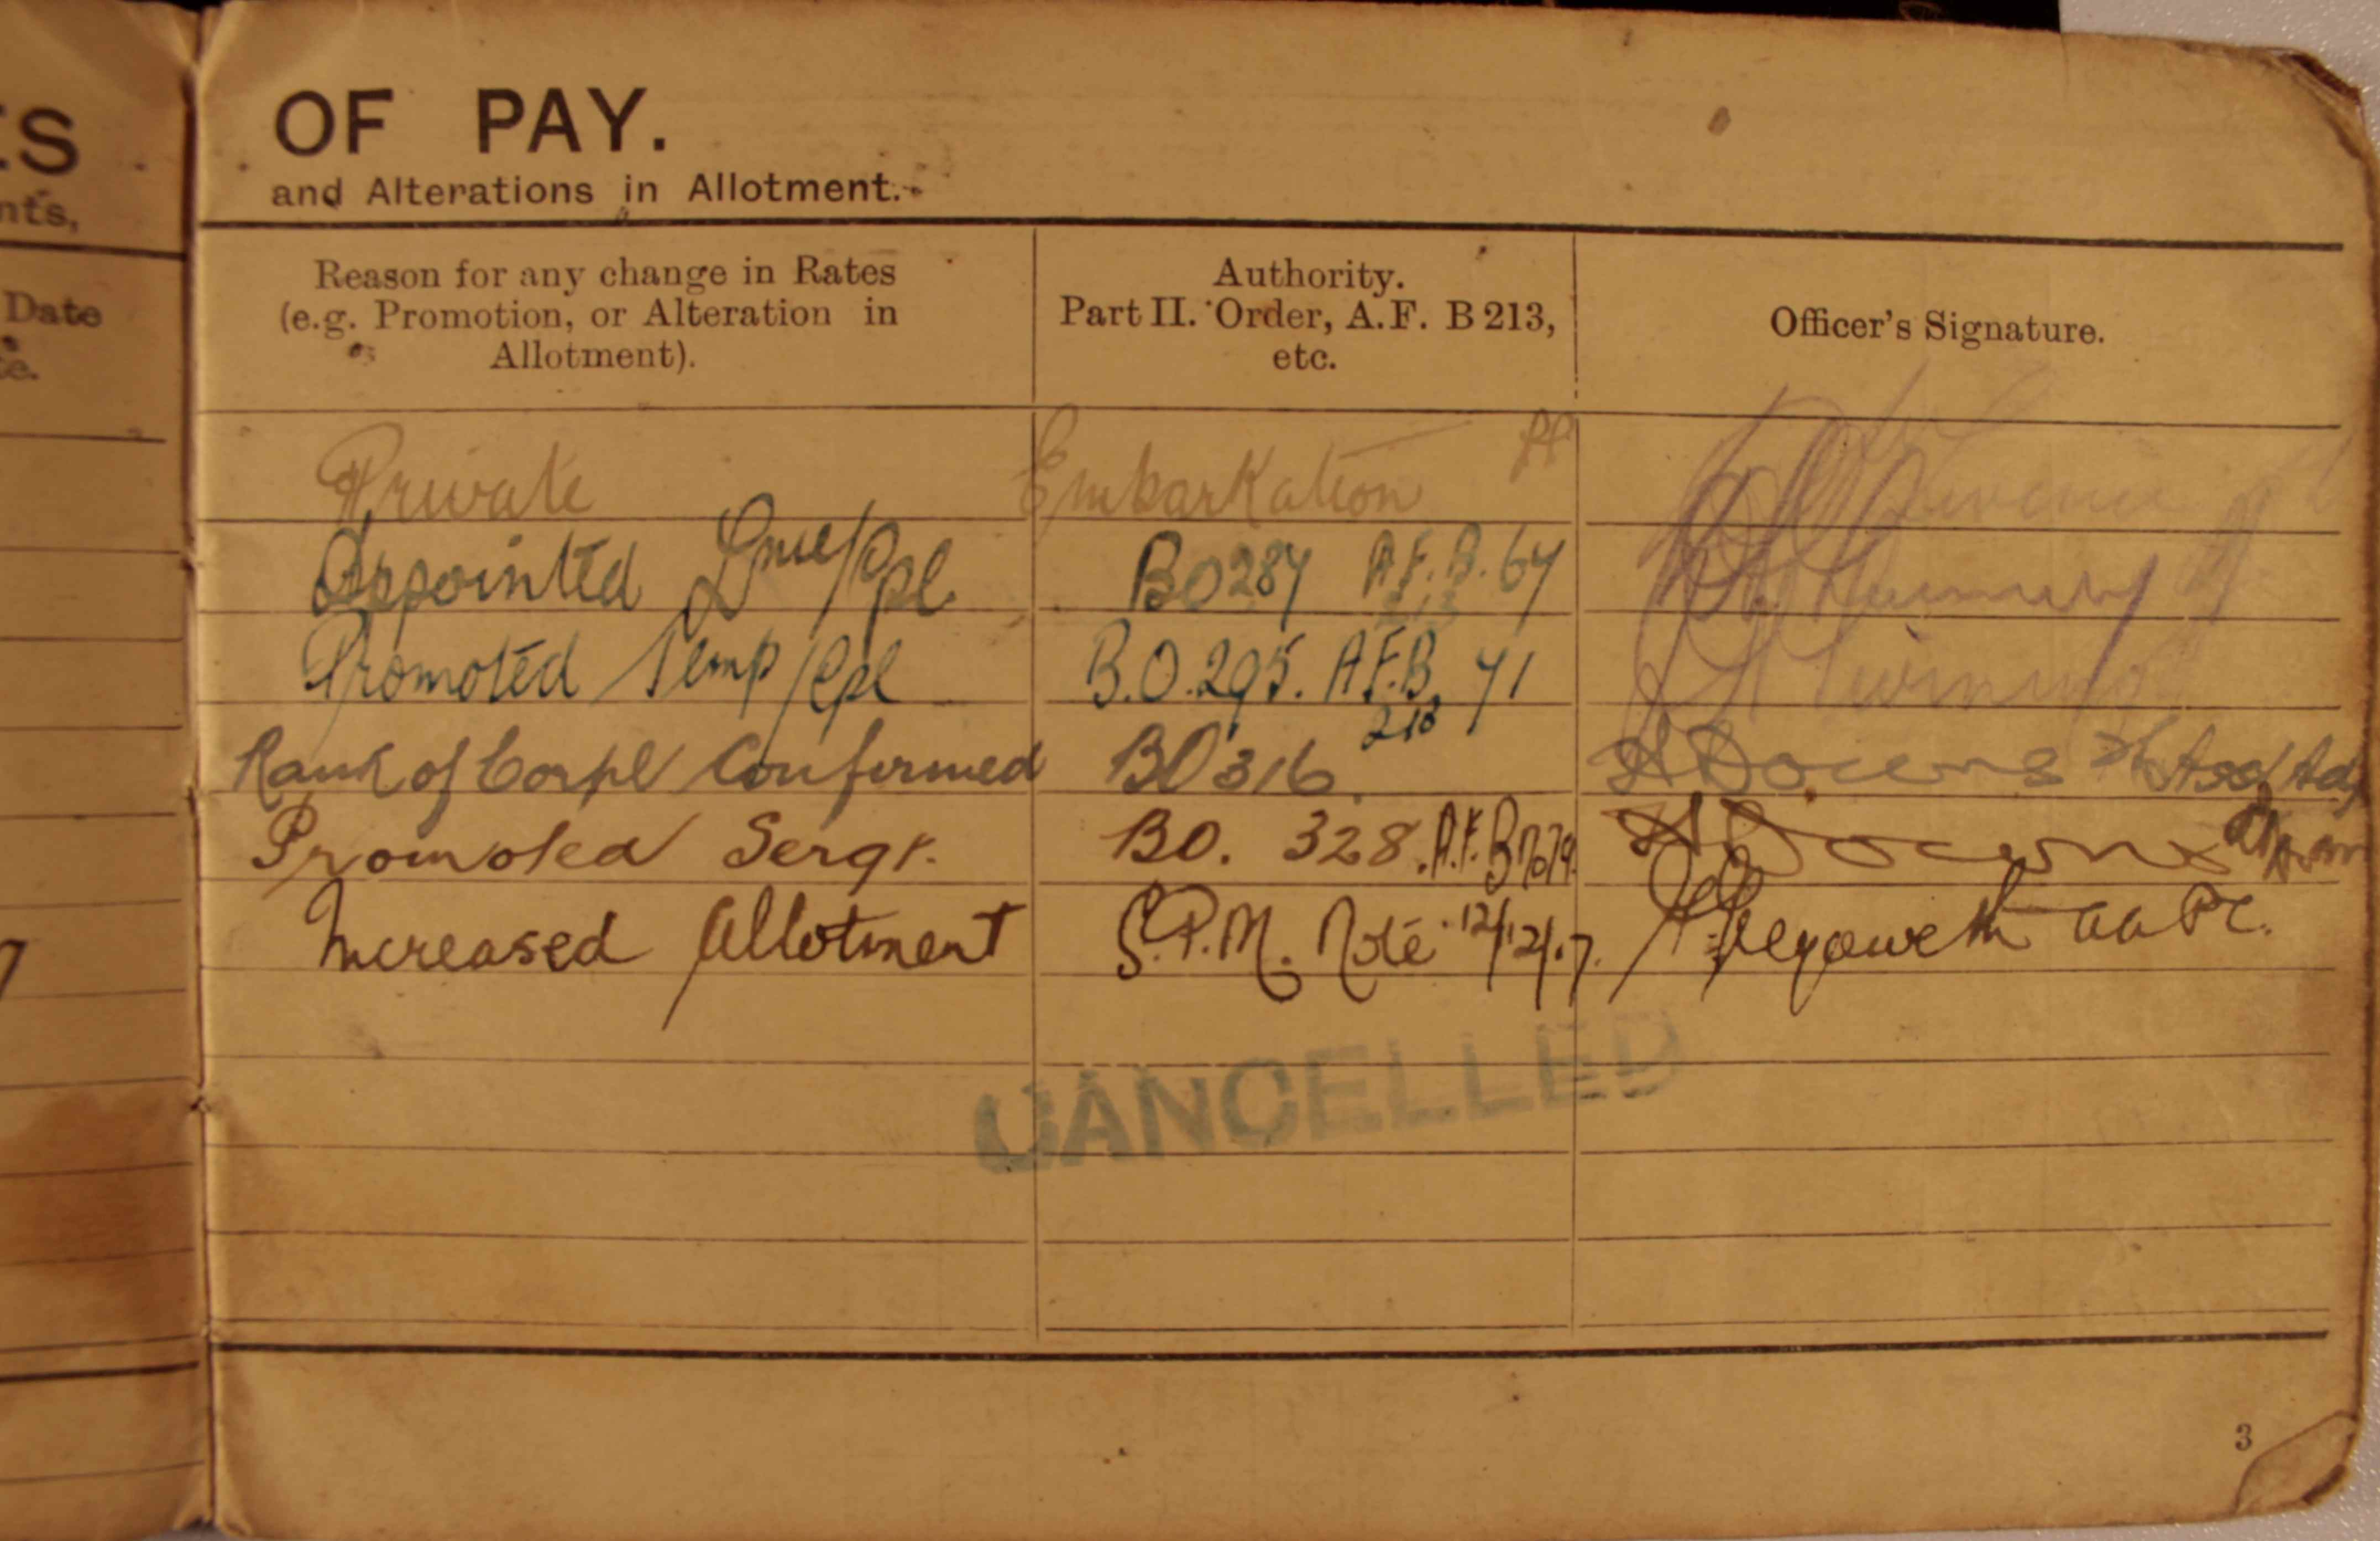 ES
nts,
Date
te.
OF PAY.
and Alterations in Allotment.
Reason for any change in Rates
(e.g. Promotion, or Alteration in
Allotment).
Authority.
Part II. Order, A.F. B 213,
etc.
Officer's Signature.
Private Embarkation
Appointed Lnce/Cpl B0284 A.F.B. 64
213
Promoted Temp/Cpl B.O.295. A.F.B. 71
213
Rank of Corpl Confirmed BO 316 Downs
Promoted Sergt. BO. 328. A.F.B No 79. Downs
Increased Allotment S.P.M. Note 12/12/17. aaPC.
CANCELLED
7
3